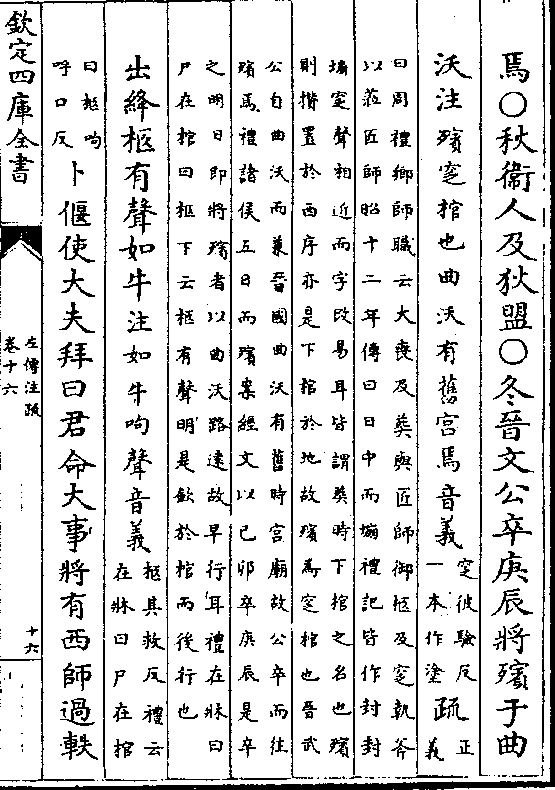 焉○秋衛人及狄盟○冬晉文公卒庚辰將殯于曲
沃注殯窆棺也曲沃有舊宮焉音義窆彼驗反一本作塗疏正義
曰周禮鄉師職云大喪及葬與匠師御柩及窆執斧
以蒞匠師昭十二年傳曰日中而塴禮記皆作封封
塴窆聲相近而字改易耳皆謂葬時下棺之名也殯
則㯡置於西序亦是下棺於地故殯為窆棺也晉武
公自曲沃而兼晉國曲沃有舊時宮廟故公卒而往
殯焉禮諸侯五日而殯案經文以己卯卒庚辰是卒
之明日即將殯者以曲沃路遠故早行耳禮在牀曰
尸在棺曰柩下云柩有聲明是歛於棺而後行也
出絳柩有聲如牛注如牛呴聲音義柩其救反禮云在牀曰尸在棺
曰柩呴呼口反卜偃使大夫拜曰君命大事將有西師過軼
欽定四庫全書
左傳注疏
卷十六
十六